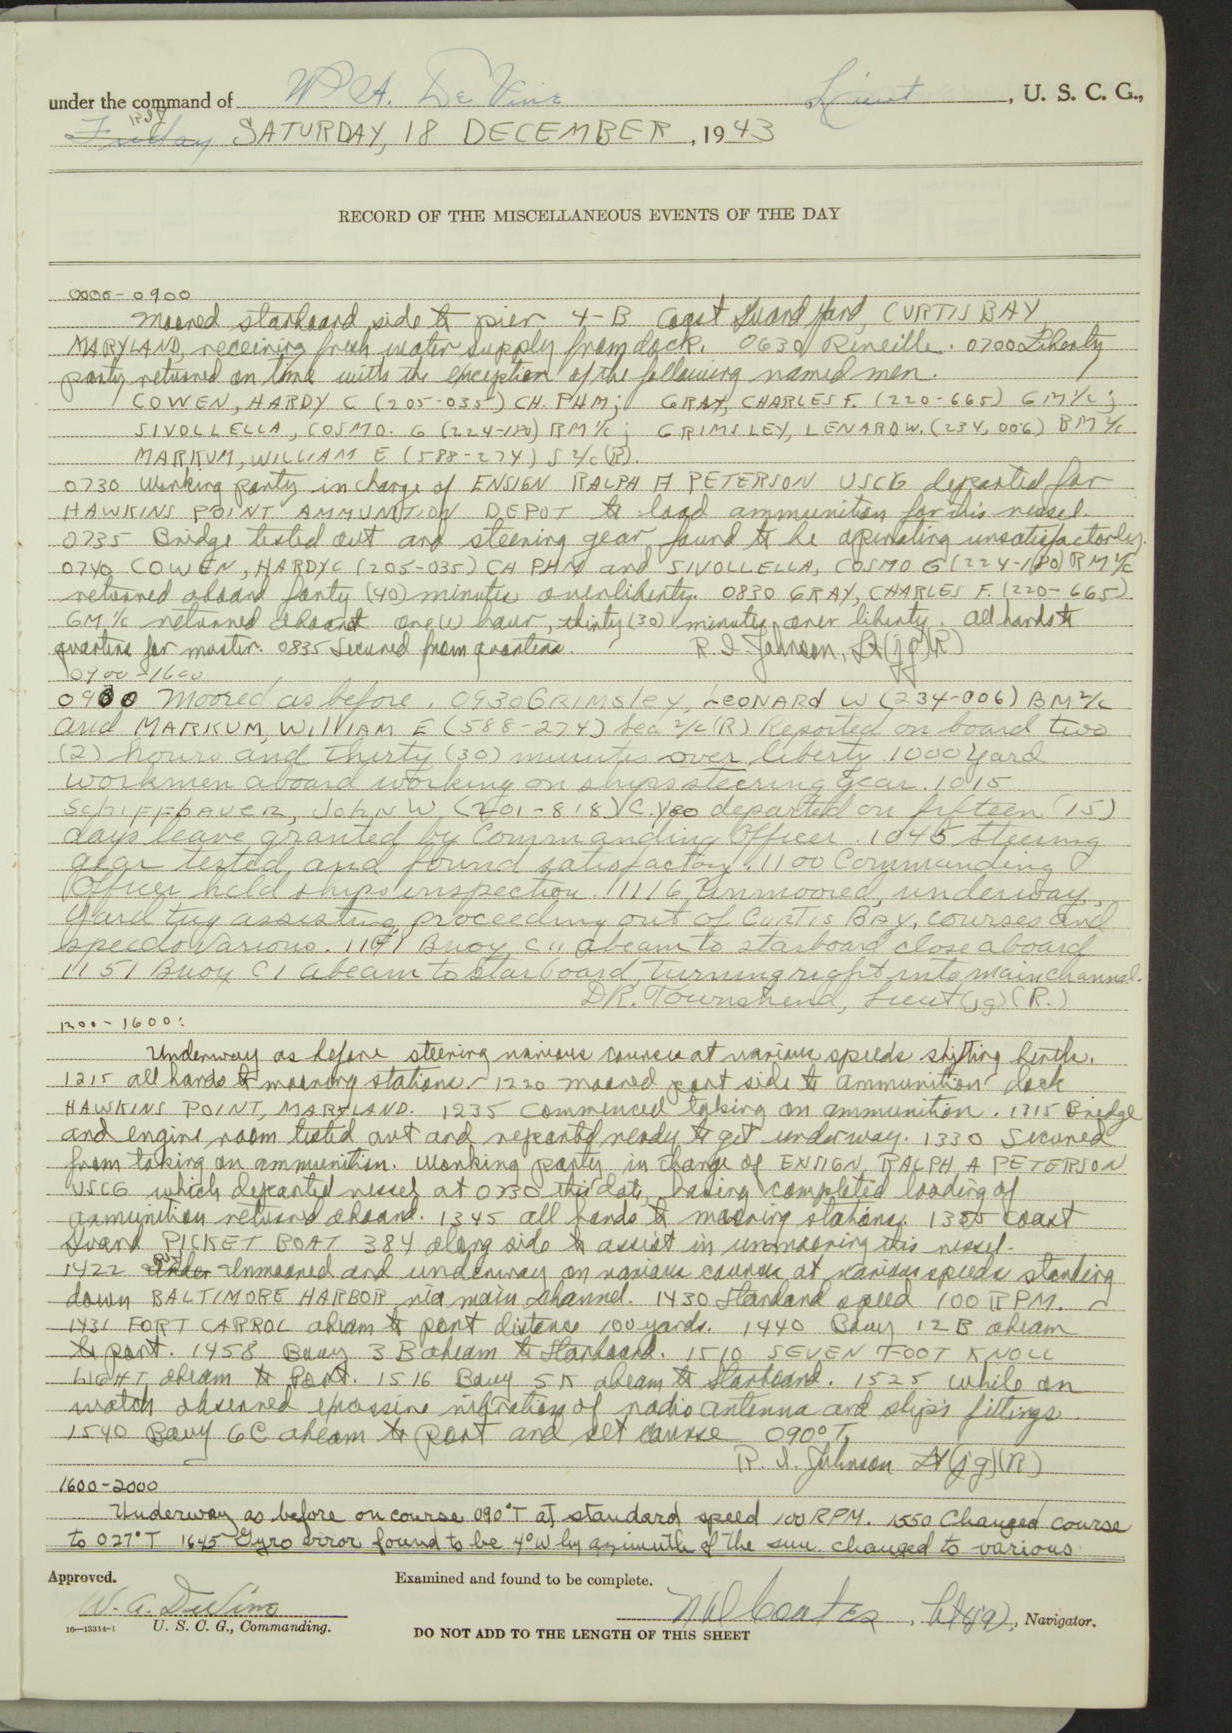 under the command of W. A. DeVine Lieut , U. S. C. G.,
Friday SATURDAY, 18 DECEMBER , 1943
RECORD OF THE MISCELLANEOUS EVENTS OF THE DAY
0000-0900
Moored starboard side to pier 4-B Coast Guard Yard, CURTIS BAY
MARYLAND, receiving fresh water supply from dock. 0630 Reveille. 0700 Liberty
party returned on time with the exception of the following named men.
COWEN, HARDY C (205-035) CH. PHM; GRAY, CHARLES F. (220-665) GM 1/c;
SIVOLLELLA, COSMO. G (224-180) RM 1/c; GRIMSLEY, LENARD W. (234,006) BM 2/c
MARKUM, WILLIAM E (588-274) S 2/c (R).
0730 Working party in charge of ENSIGN RALPH A PETERSON USCG departed for
HAWKINS POINT AMMUNITION DEPOT to load ammunition for this vessel.
0735 Bridge tested out and steering gear found to be operating unsatisfactorly.
0740 COWEN, HARDY C (205-035) CH PHM and SIVOLLELLA, COSMO G (224-180) RM 1/c
returned aboard forty (40) minutes overliberty. 0830 GRAY, CHARLES F. (220-665)
GM 1/c returned aboard one (1) hour, thirty (30) minutes over liberty. All hands to
quarters for muster. 0835 Secured from quarters. R. I. Johnson, Lt (jg)(R)
0900-1600
0900 Moored as before. 0930 GRIMSLEY, LEONARD W (234-006) BM 2/c
and MARKUM, WILLIAM E (588-274) Sea 2/c (R) Reported on board two
(2) hours and thirty (30) minutes over liberty. 1000 Yard
workmen aboard working on ships steering gear. 1015
SCHIFFBAUER, JOHN W (201-818) C.Yeo departed on fifteen (15)
days leave granted by Commanding Officer. 1045 Steering
gear tested and found satisfactory. 1100 Commanding
Officer held ships inspection. 1116 Unmoored, underway,
Yard tug assisting, proceeding out of CURTIS BAY, courses and
speeds various. 1141 Buoy C11 abeam to starboard close aboard
1151 Buoy C1 abeam to starboard turning right into main channel.
D.R. Townshend, Lieut (jg) (R.)
1200-1600:
Underway as before steering various courses at various speeds shifting berth.
1215 all hands to mooring stations - 1220 moored port side to ammunition dock
HAWKINS POINT, MARYLAND. 1235 Commenced taking on ammunition. 1315 Bridge
and engine room tested out and reported ready to get underway. 1330 Secured
from taking on ammunition. Working party in charge of ENSIGN RALPH A PETERSON
USCG which departed vessel at 0730 this date, having completed loading of
ammunition returned aboard. 1345 all hands to mooring stations. 1355 Coast
Guard PICKET BOAT 384 along side to assist in unmooring this vessel.
1422 Under Unmoored and underway on various courses at various speeds standing
down BALTIMORE HARBOR via main channel. 1430 Standard speed 100 RPM.
1431 FORT CARROL abeam to port distance 100 yards. 1440 Bouy 12 B abeam
to port. 1458 Bouy 3 B abeam to Starboard. 1510 SEVEN FOOT KNOLL
LIGHT abeam to Port. 1516 Bouy 5 K abeam to Starboard. 1525 while on
watch observed excessive vibration of radio antenna and ship's fittings.
1540 Bouy 6C abeam to port and set course 090°T.
R. I. Johnson Lt (jg)(R)
1600-2000
Underway as before on course 090°T at standard speed 100 RPM. 1550 Changed course
to 027°T 1645 Gyro error found to be 4°W by azimuth of the sun. changed to various
Approved. Examined and found to be complete.
W. A. DeVine , Lt(jg), Navigator.
16—13314-1 U. S. C. G., Commanding.
DO NOT ADD TO THE LENGTH OF THIS SHEET